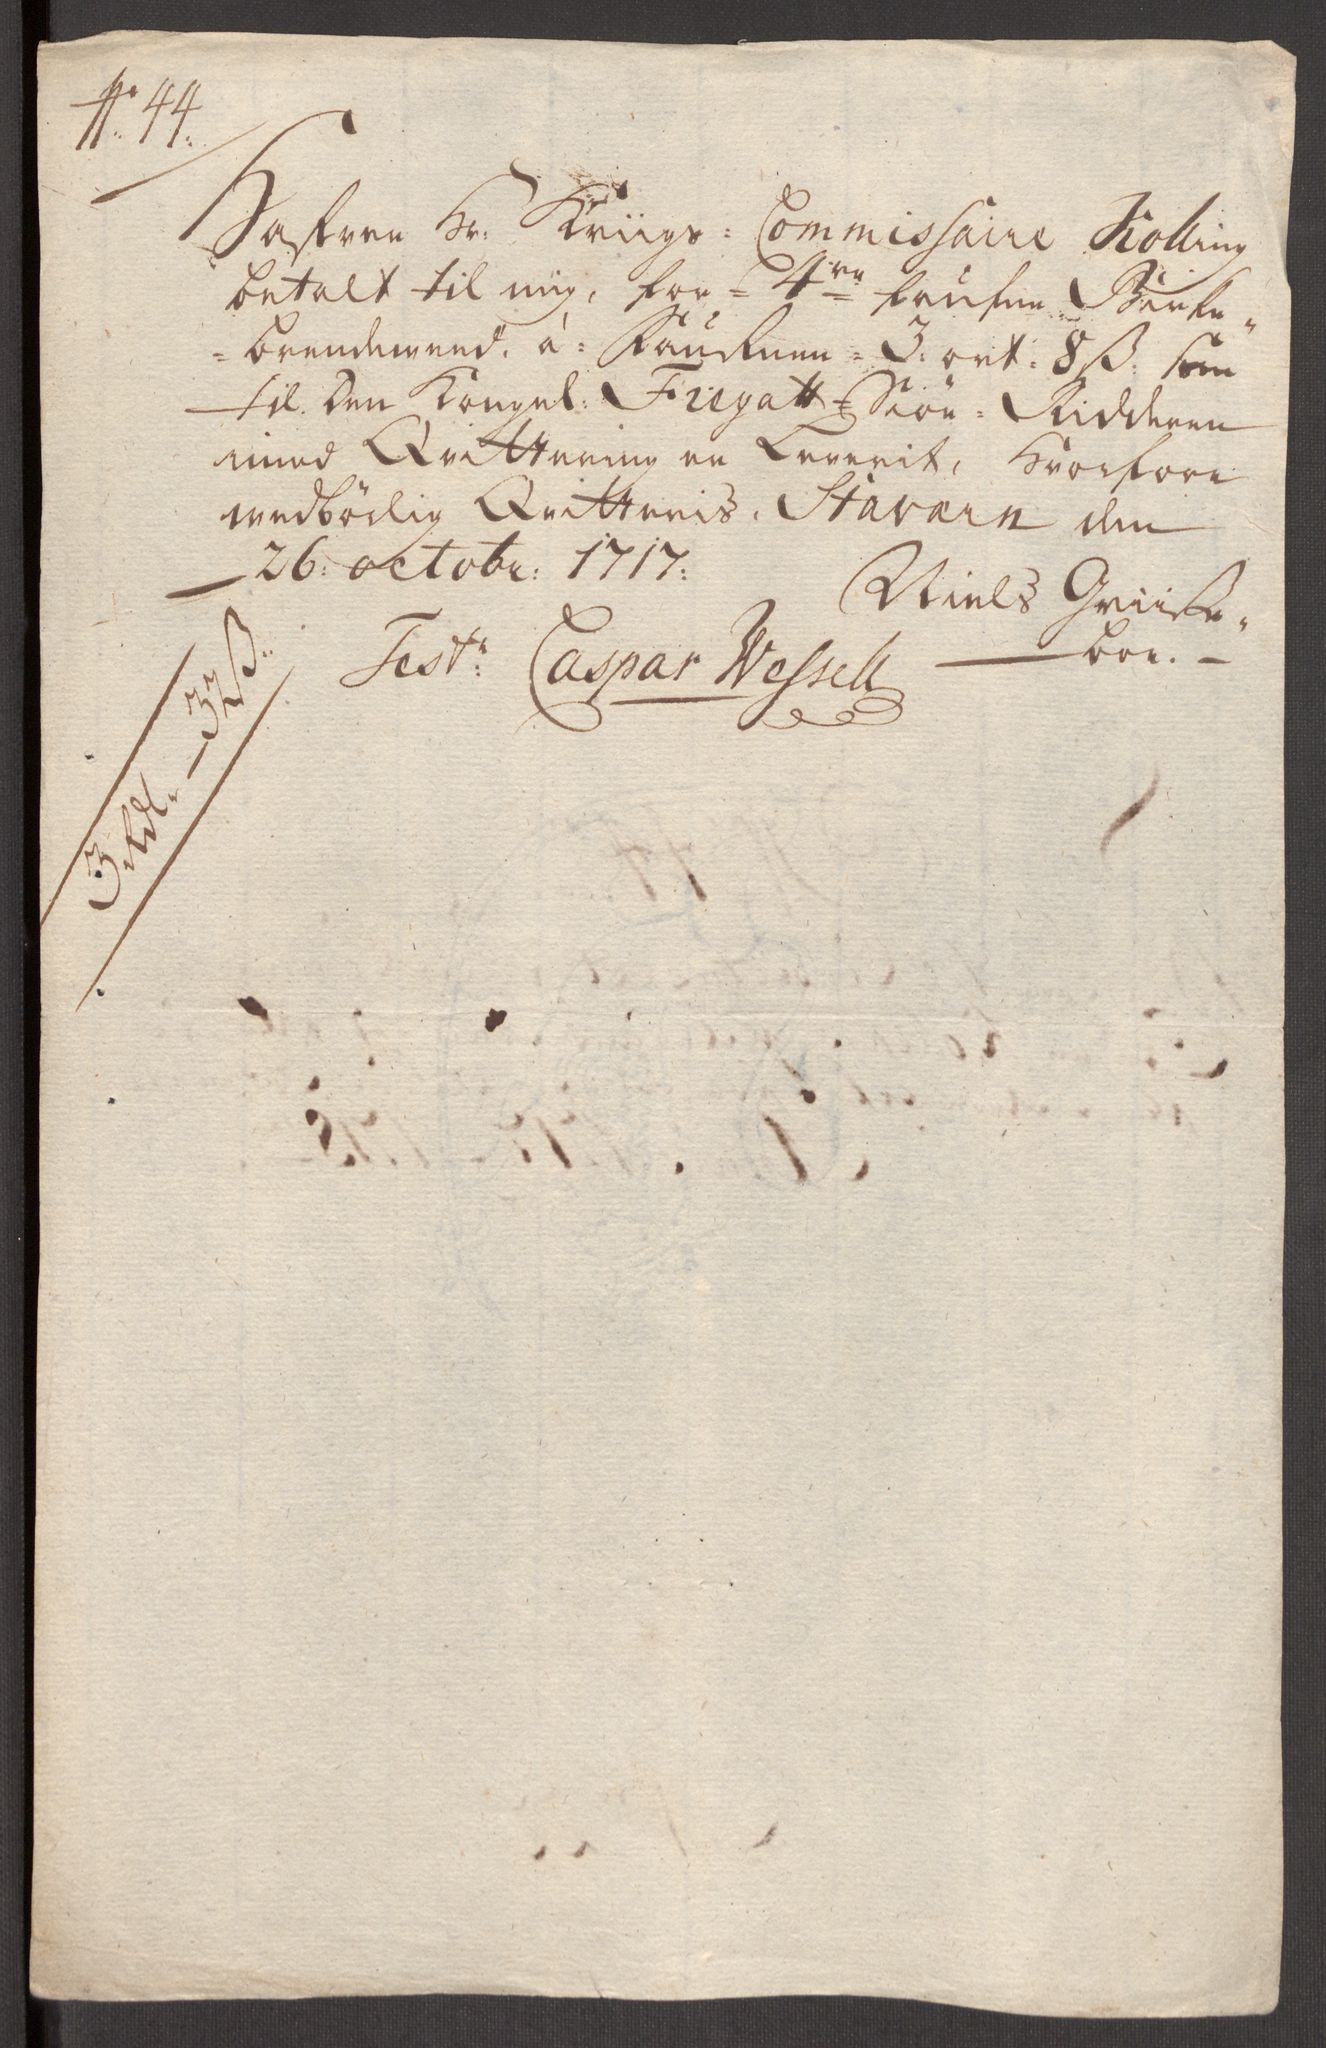 N: 44.
Hafver Hr: Kriigs = Commissaire Kolling
betalt til mig, for = 4re faufne Birke=
=brendeveed. a: Faufnen = 3. ort. 8 ß: som
til den Kongel: Fregatt = Siöe = Ridderen
imod Qvittering er Leverit, hvorfore
vedbörlig Qvitteris. Staværn den
26: octobr: 1717:
Niels Griisse=
boe.
Test: Caspar Wessell
3 Rdl. — 32 ß.